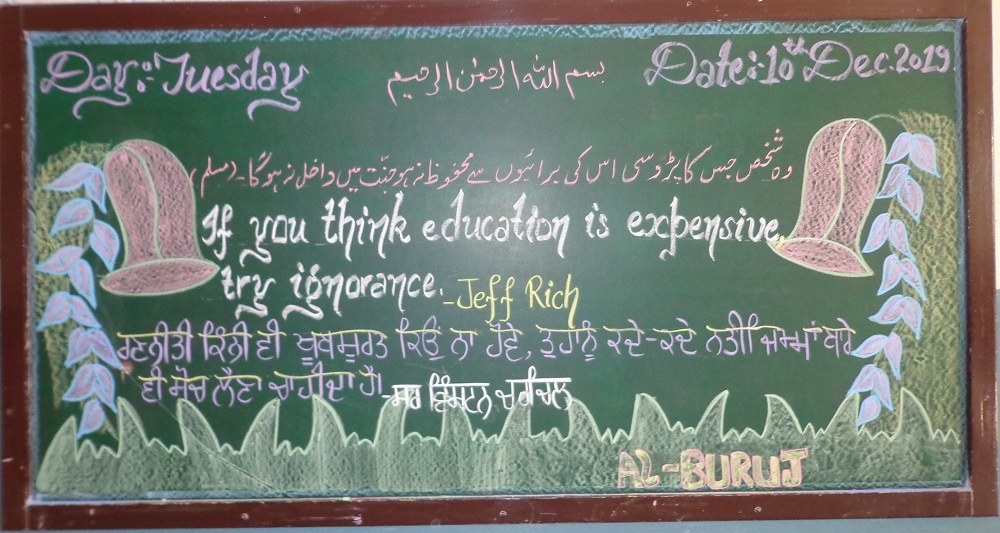 Day:- Tuesday
بسم اللہ الرحمٰن الرحیم
Date:- 10th Dec. 2019
وہ شخص جس کا پڑوسی اس کی برائیوں سے محفوظ نہ ہو جنّت میں داخل نہ ہوگا۔ (مسلم)
If you think education is expensive,
try ignorance. -Jeff Rich
ਰਣਨੀਤੀ ਕਿੰਨੀ ਵੀ ਖੂਬਸੂਰਤ ਕਿਉਂ ਨਾ ਹੋਵੇ, ਤੁਹਾਨੂੰ ਕਦੇ-ਕਦੇ ਨਤੀਜਿਆਂ ਬਾਰੇ
ਵੀ ਸੋਚ ਲੈਣਾ ਚਾਹੀਦਾ ਹੈ। -ਸਰ ਵਿੰਸਟਨ ਚਰਚਿਲ
AL-BURUJ